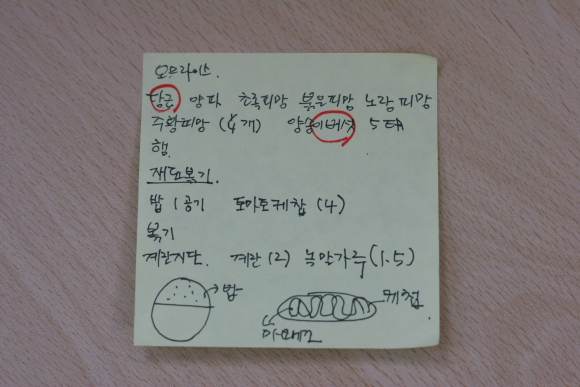 오므라이스.
당근 양파 초록피망 붉은피망 노랑피망
주황피망 (4개) 양송이버섯 5
햄.
재료볶기.
밥 1공기 토마토케찹 (4)
볶기
계란지단. 계란 (2) 녹말가루 (1.5)
밥
케첩